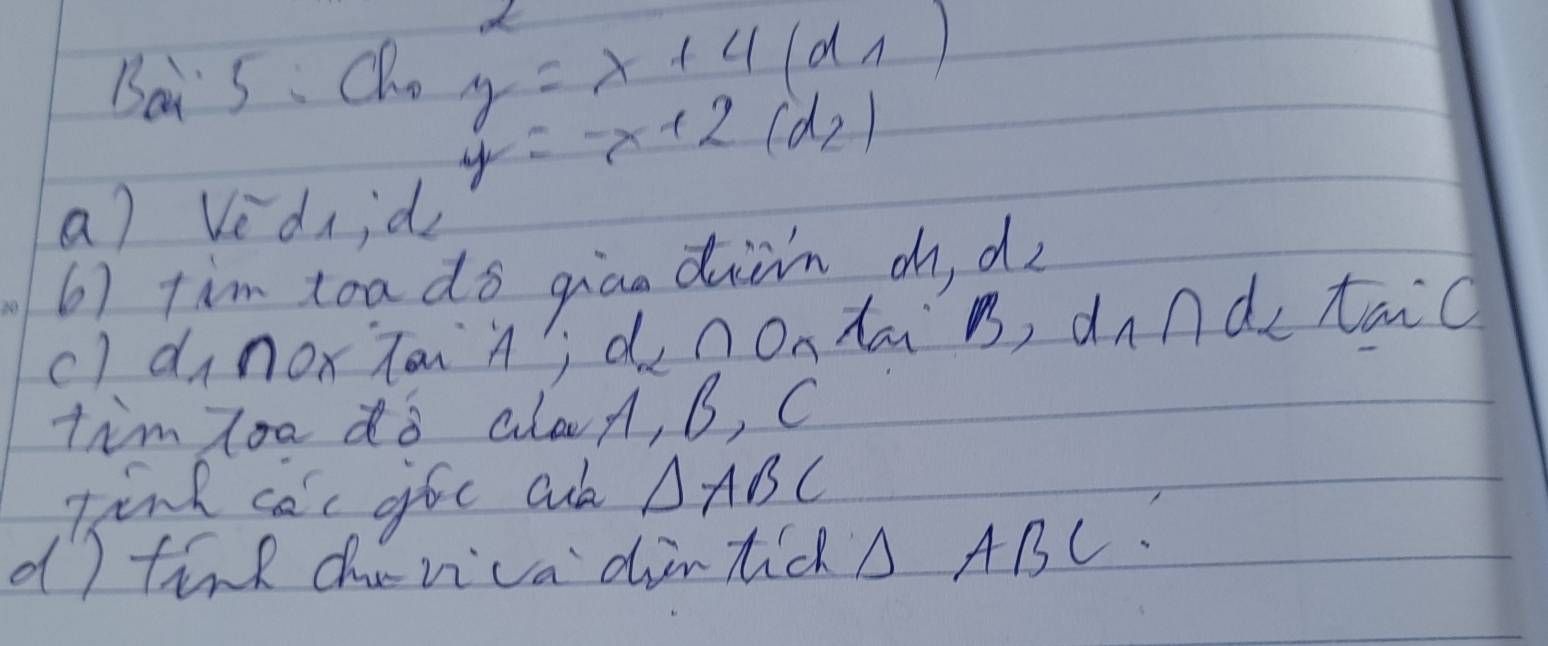 2
Bài 5: Cho y = x + 4 (d1)
y = -x + 2 (d2)
a) Vẽ d1; d2
b) tìm toạ độ giao điểm d1, d2
c) d1 ∩ Ox Tại A; d2 ∩ Ox tại B, d1 ∩ d2 tại C
tìm toạ độ của A, B, C
Tính các góc của Δ ABC
d) tính chu vi và diện tích Δ ABC.